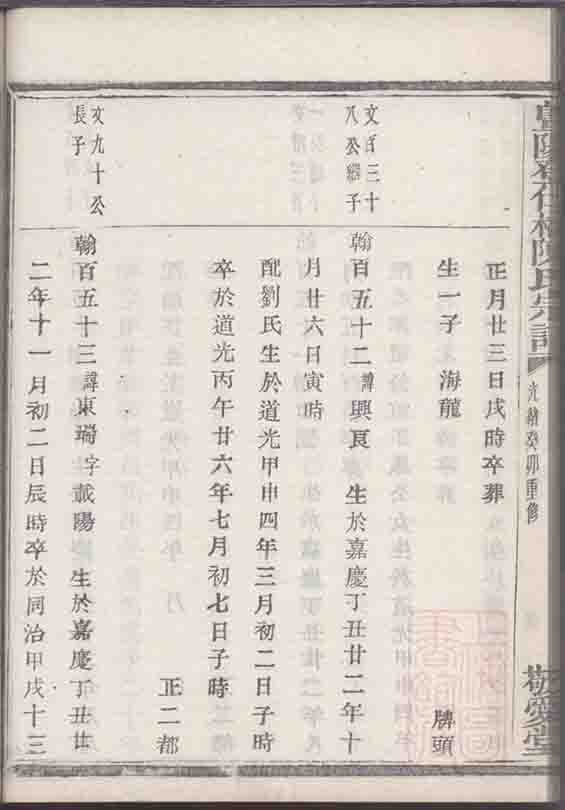 陳氏宗譜
光緒癸卯重修
敬愛堂
正月廿三日戌時卒葬
牌頭
生一子海龍
文百三十
八公繼子
翰百五十二諱興良生於嘉慶丁丑廿二年十
月廿六日寅時
配劉氏生於道光甲申四年三月初二日子時
卒於道光丙午廿六年七月初七日子時
正二都
文九十公
長子
翰百五十三諱東瑞字載陽生於嘉慶丁丑廿
二年十一月初二日辰時卒於同治甲戌十三